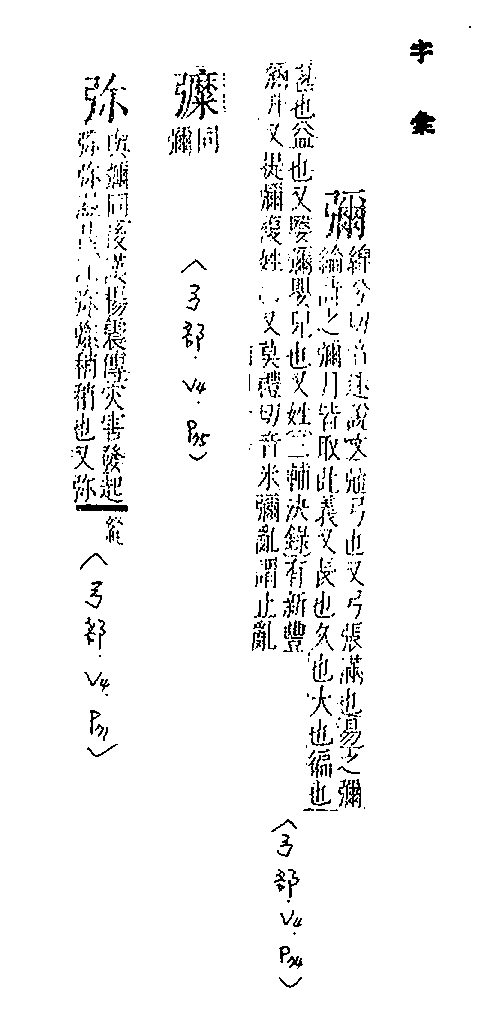 字彙
彌
綿兮切音迷說文弛弓也又弓張滿也易之彌
綸詩之彌月皆取此義又長也久也大也徧也
甚也益也又嬰彌嬰兒也又姓三輔決錄有新豐
彌升又彌複姓又莫禮切音米彌亂謂止亂
〈弓部.V4.P34〉
同
彌
〈弓部.V4.P35〉
弥
與彌同後漢楊震傳灾害發起
弥弥滋甚註弥弥稍稍也又弥
縫
〈弓部.V4.P31〉